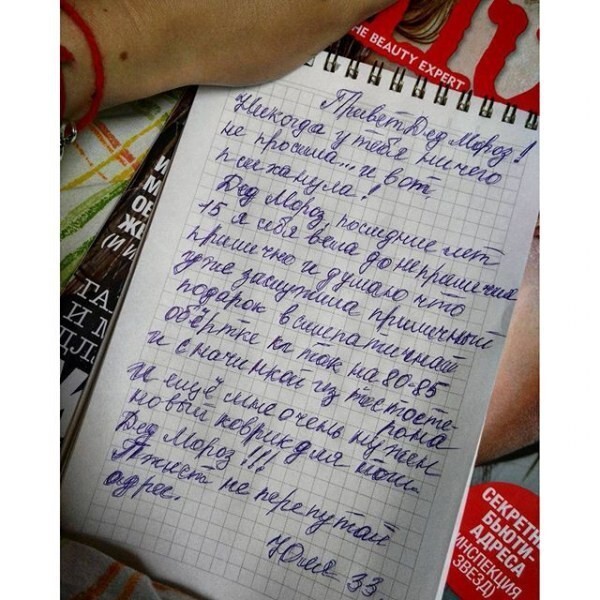 THE BEAUTY EXPERT
Привет Дед Мороз!
Никогда у тебя ничего
не просила... и вот,
психанула!
Дед Мороз, последние лет
15 я себя вела до неприличия
прилично и думаю что
уже заслужила приличный
подарок в симпатичной
обёртке кг так на 80-85
и с начинкой из тестосте-
рона
И ещё мне очень нужен
новый коврик для йоги.
Дед Мороз!!!
Пжнста не перепутай
адрес.
Юлия 33
СЕКРЕТН
БЬЮТИ-
АДРЕСА
(ИНСПЕКЦИЯ
ЗВЕЗД)